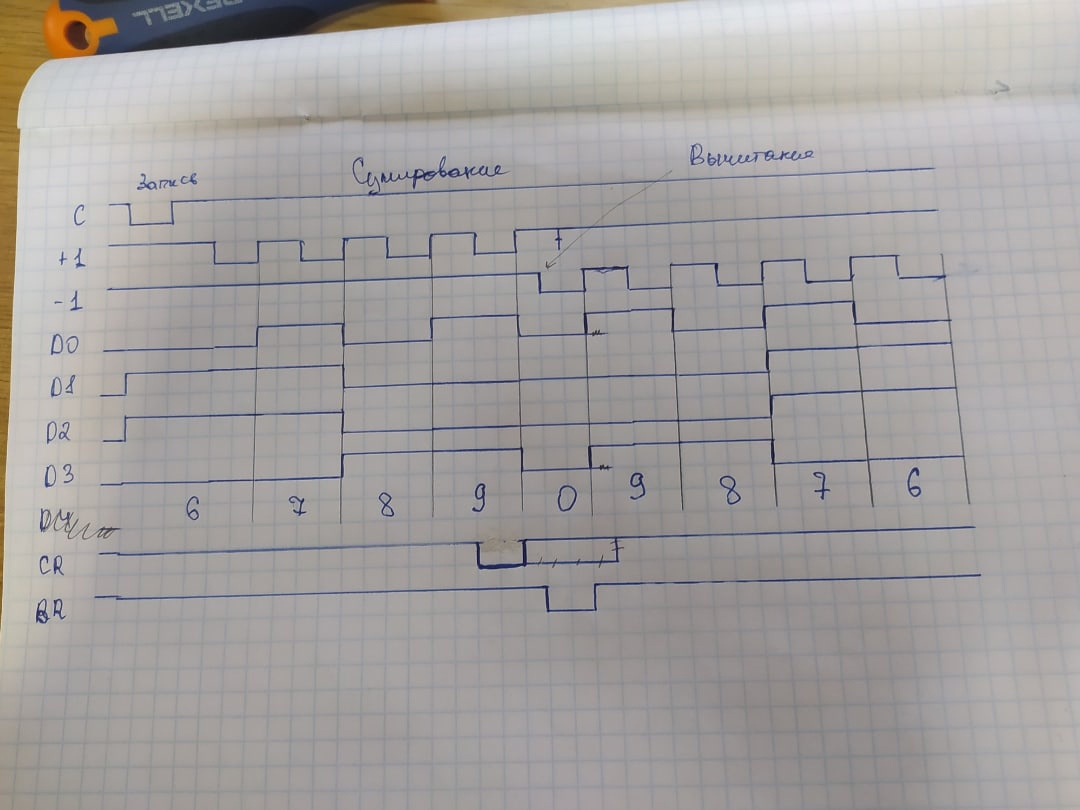 DEXELL
Запись Сумирование Вычитание
C
+1
-1
D0
D1
D2
D3
6 7 8 9 0 9 8 7 6
CR
BR